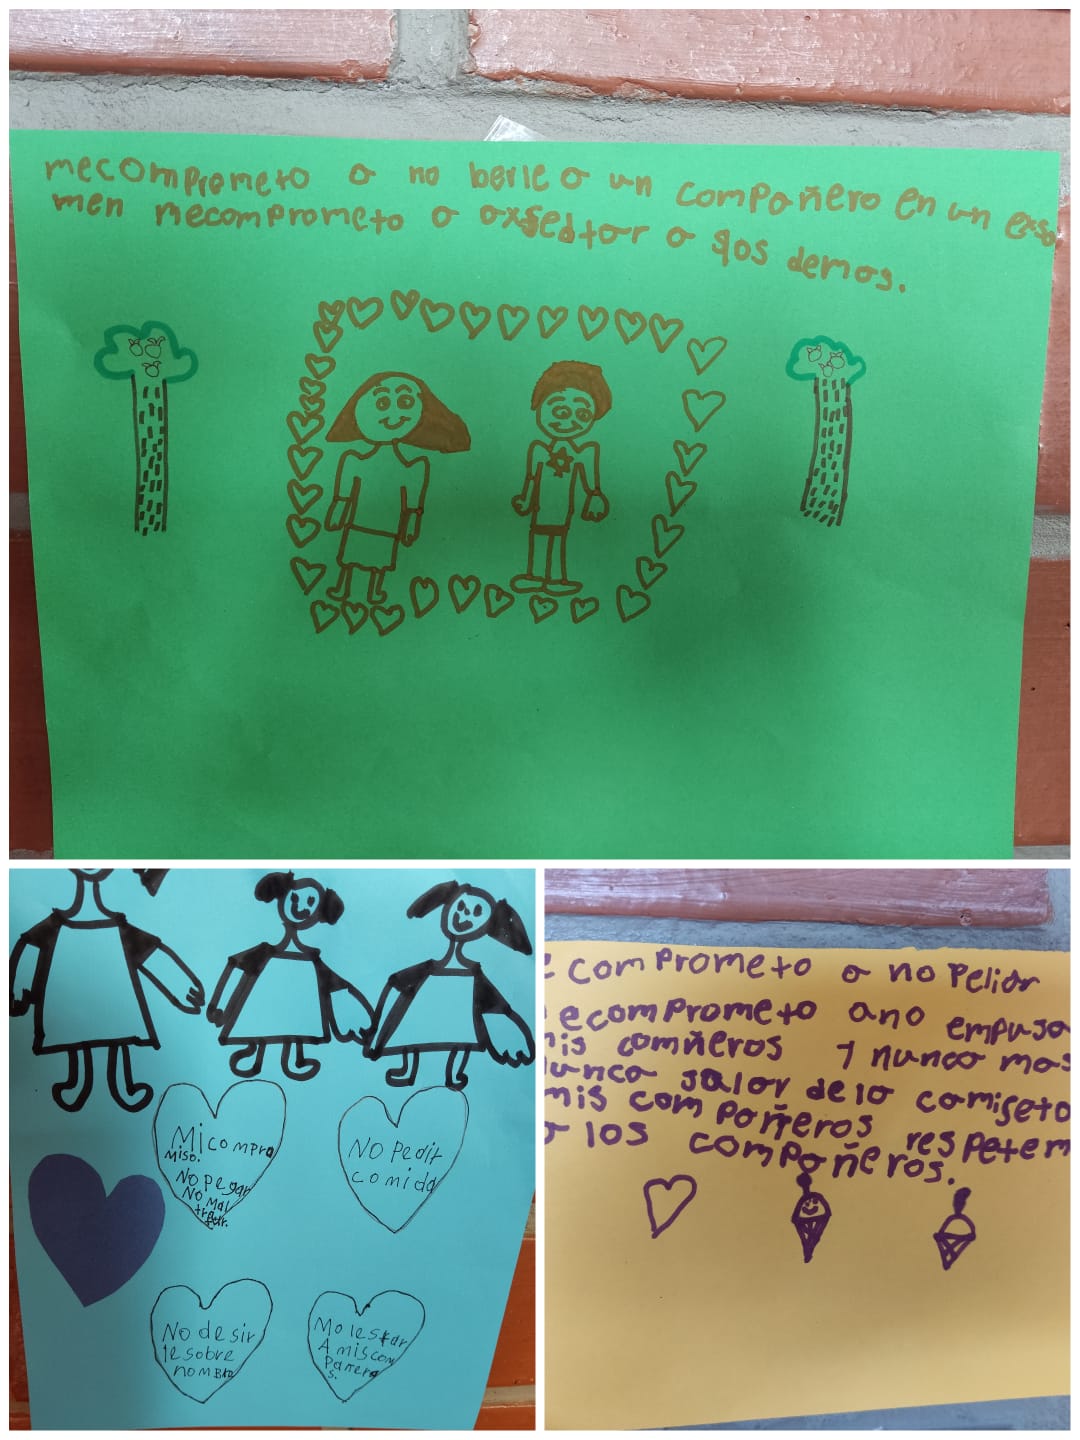 mecomprometo a no berle a un compañero en un exsa
men mecomprometo a a los demas.
Mi compro
miso.
No pegar
No Mal
tratar.
NO Pedir
comida
No desir
le sobre
nombre
Molestar
A mis com
pañera
s.
e comprometo a no peliar
ecomprometo ano empuja
is comñeros y nunca mas
unca jalar de la camiseta
mis compañeros respetem
a los compañeros.